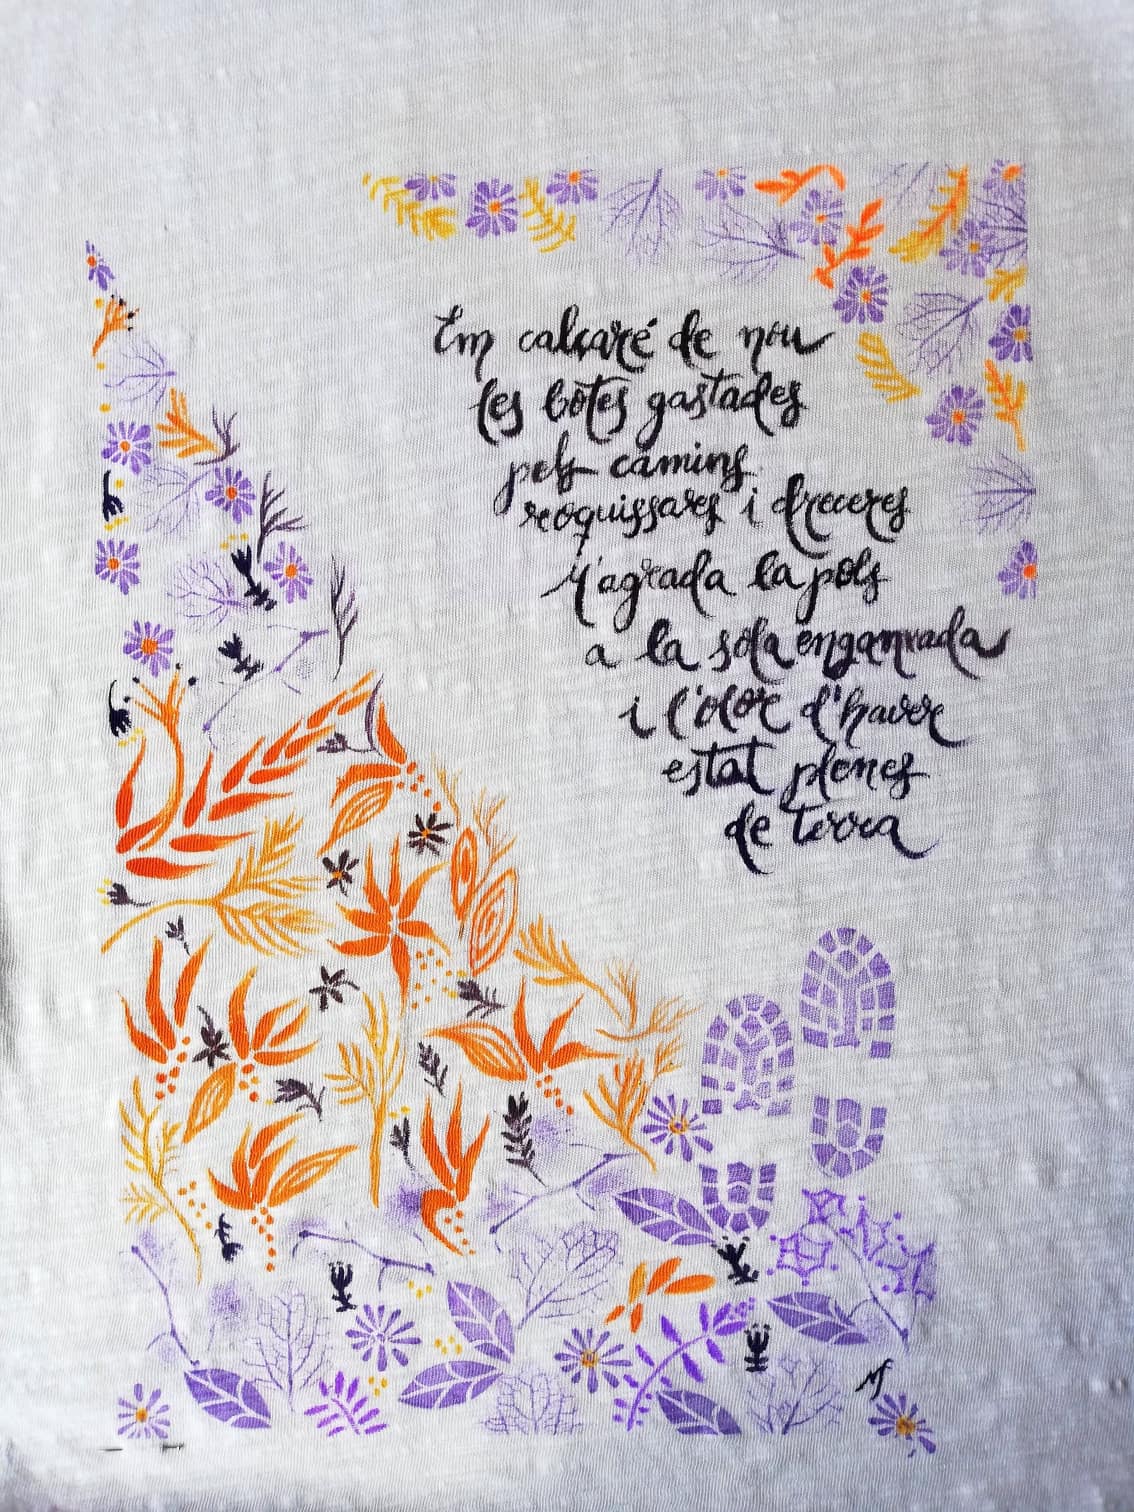 Em calçaré de nou
les botes gastades
pels camins
roquissars i dreceres
M'agrada la pols
a la sola enganxada
i l'olor d'haver
estat plenes
de terra